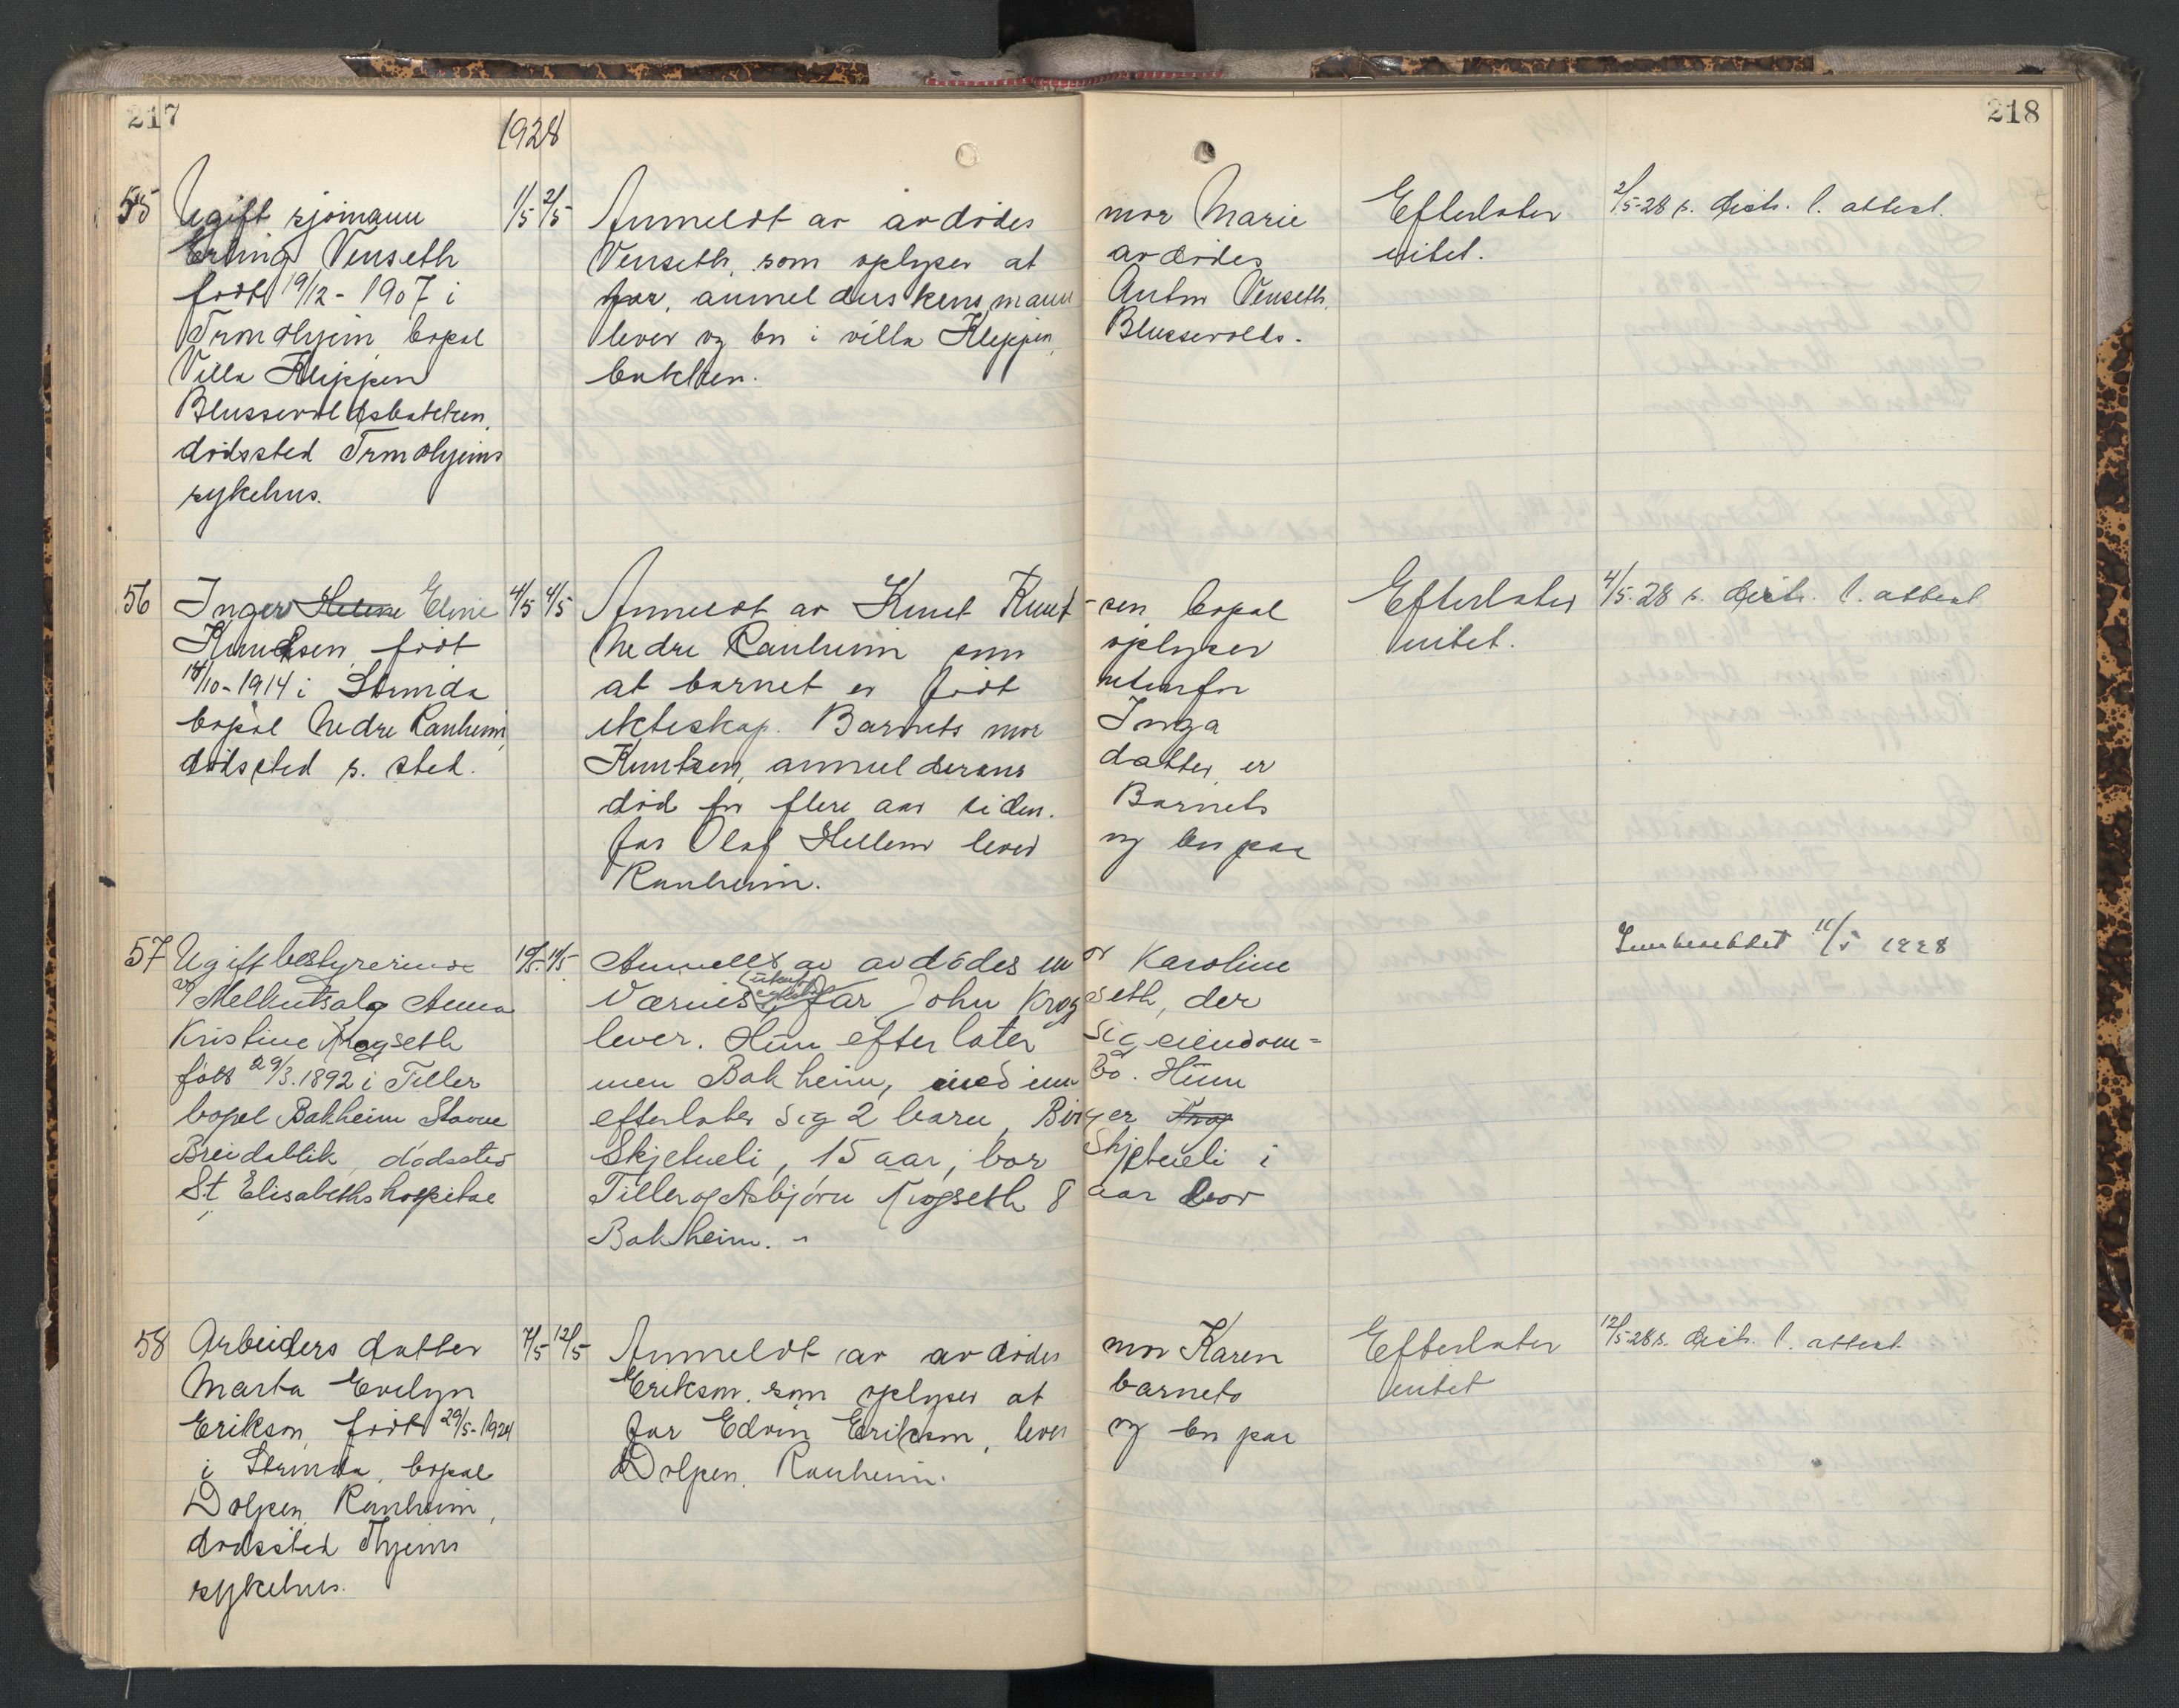 217
218
1928
55 Ugift sjømann 1/5 2/5 Anmeldt av avdødes mor Marie Efterlater 2/5-28 s. distr. l. attest.
Erling Venseth Venseth, som oplyser at avdødes intet.
født 19/12-1907 i far, anmelderskens mann Anton Venseth,
Trondhjem bopel lever og bor i villa Kleppen, Blussevolds-
Villa Kleppen bakken.
Blussevoldsbakken,
dødssted Trondhjems
sykehus.
56 Inger Helene Eline 4/5 4/5 Anmeldt av Knut Knut-sen bopel Efterlater 4/5-28 s. distr. l. attest
Knudsen født Nedre Ranheim som oplyser intet.
14/10-1914 i Strinda at barnet er født utenfor
bopel Nedre Ranheim, ekteskap. Barnets mor Inga
dødssted s. sted. Knutsen, anmelderens datter er
død for flere aar siden. Barnets
far Olaf Hellem lever og bor paa
Ranheim.
57 Ugift bestyrerinde 10/5 11/5 Anmeldt av avdødes mor Karoline Innberettet 11/5 1928
v/ Melkutsalg Anna Værnes (utenfor ekteskap) far John Krogseth, der
Kristine Krogseth lever. Hun efterlater sig eiendom=
født 29/3.1892 i Tiller men Bakheim, med innbo. Hun
bopel Bakheim Stavne efterlater sig 2 barn, Birger Krog
Breidablik, dødssted Skjetneli, 15 aar, bor Skjetneli i
St. Elisabeths hospital Tiller og Asbjørn Krogseth 8 aar bor
Bakheim.
58 Arbeiders datter 7/5 12/5 Anmeldt av avdødes mor Karen Efterlater 12/5-28 s. distr. l. attest
Marta Evelyn Erikson, som oplyser at barnets intet
Erikson, født 29/5-1924 far Edvin Erikson, lever og bor paa
i Strinda, bopel Dolpen, Ranheim.
Dolpen, Ranheim,
dødssted Thjems
sykehus.